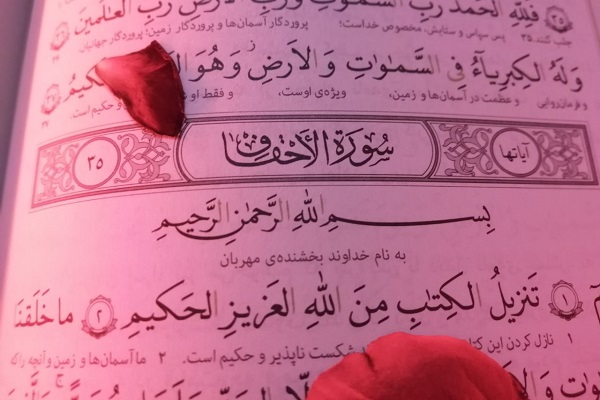 فَلِلّهِ الحَمدُ رَبِّ السَّمٰوٰتِ وَرَبِّ الاَرضِ رَبِّ العٰلَمينَ ۳۶
جلب کنند. ۳۵ پس سپاس و ستایش، مخصوص خداست؛ پروردگار آسمان‌ها و پروردگار زمین؛ پروردگار جهانیان
وَلَهُ الكِبرِياءُ فِي السَّمٰوٰتِ وَالاَرضِ وَهُوَ الحَكيمُ ۳۷
و فرمانروایی و عظمت در آسمان‌ها و زمین، ویژه‌ی اوست، و فقط او و حکیم است. ۳۷
آیاتها سُورَةُ الأَحْقَافِ ۳۵
بِسمِ اللّهِ الرَّحمٰنِ الرَّحيمِ
به نام خداوند بخشنده‌ی مهربان
۱ تَنزيلُ الكِتٰبِ مِنَ اللّهِ العَزيزِ الحَكيمِ ۲ ما خَلَقنَا
۱ نازل کردن این شکست ناپذیر و حکیم است. ۲ ما آسمان‌ها و زمین و آنچه را که